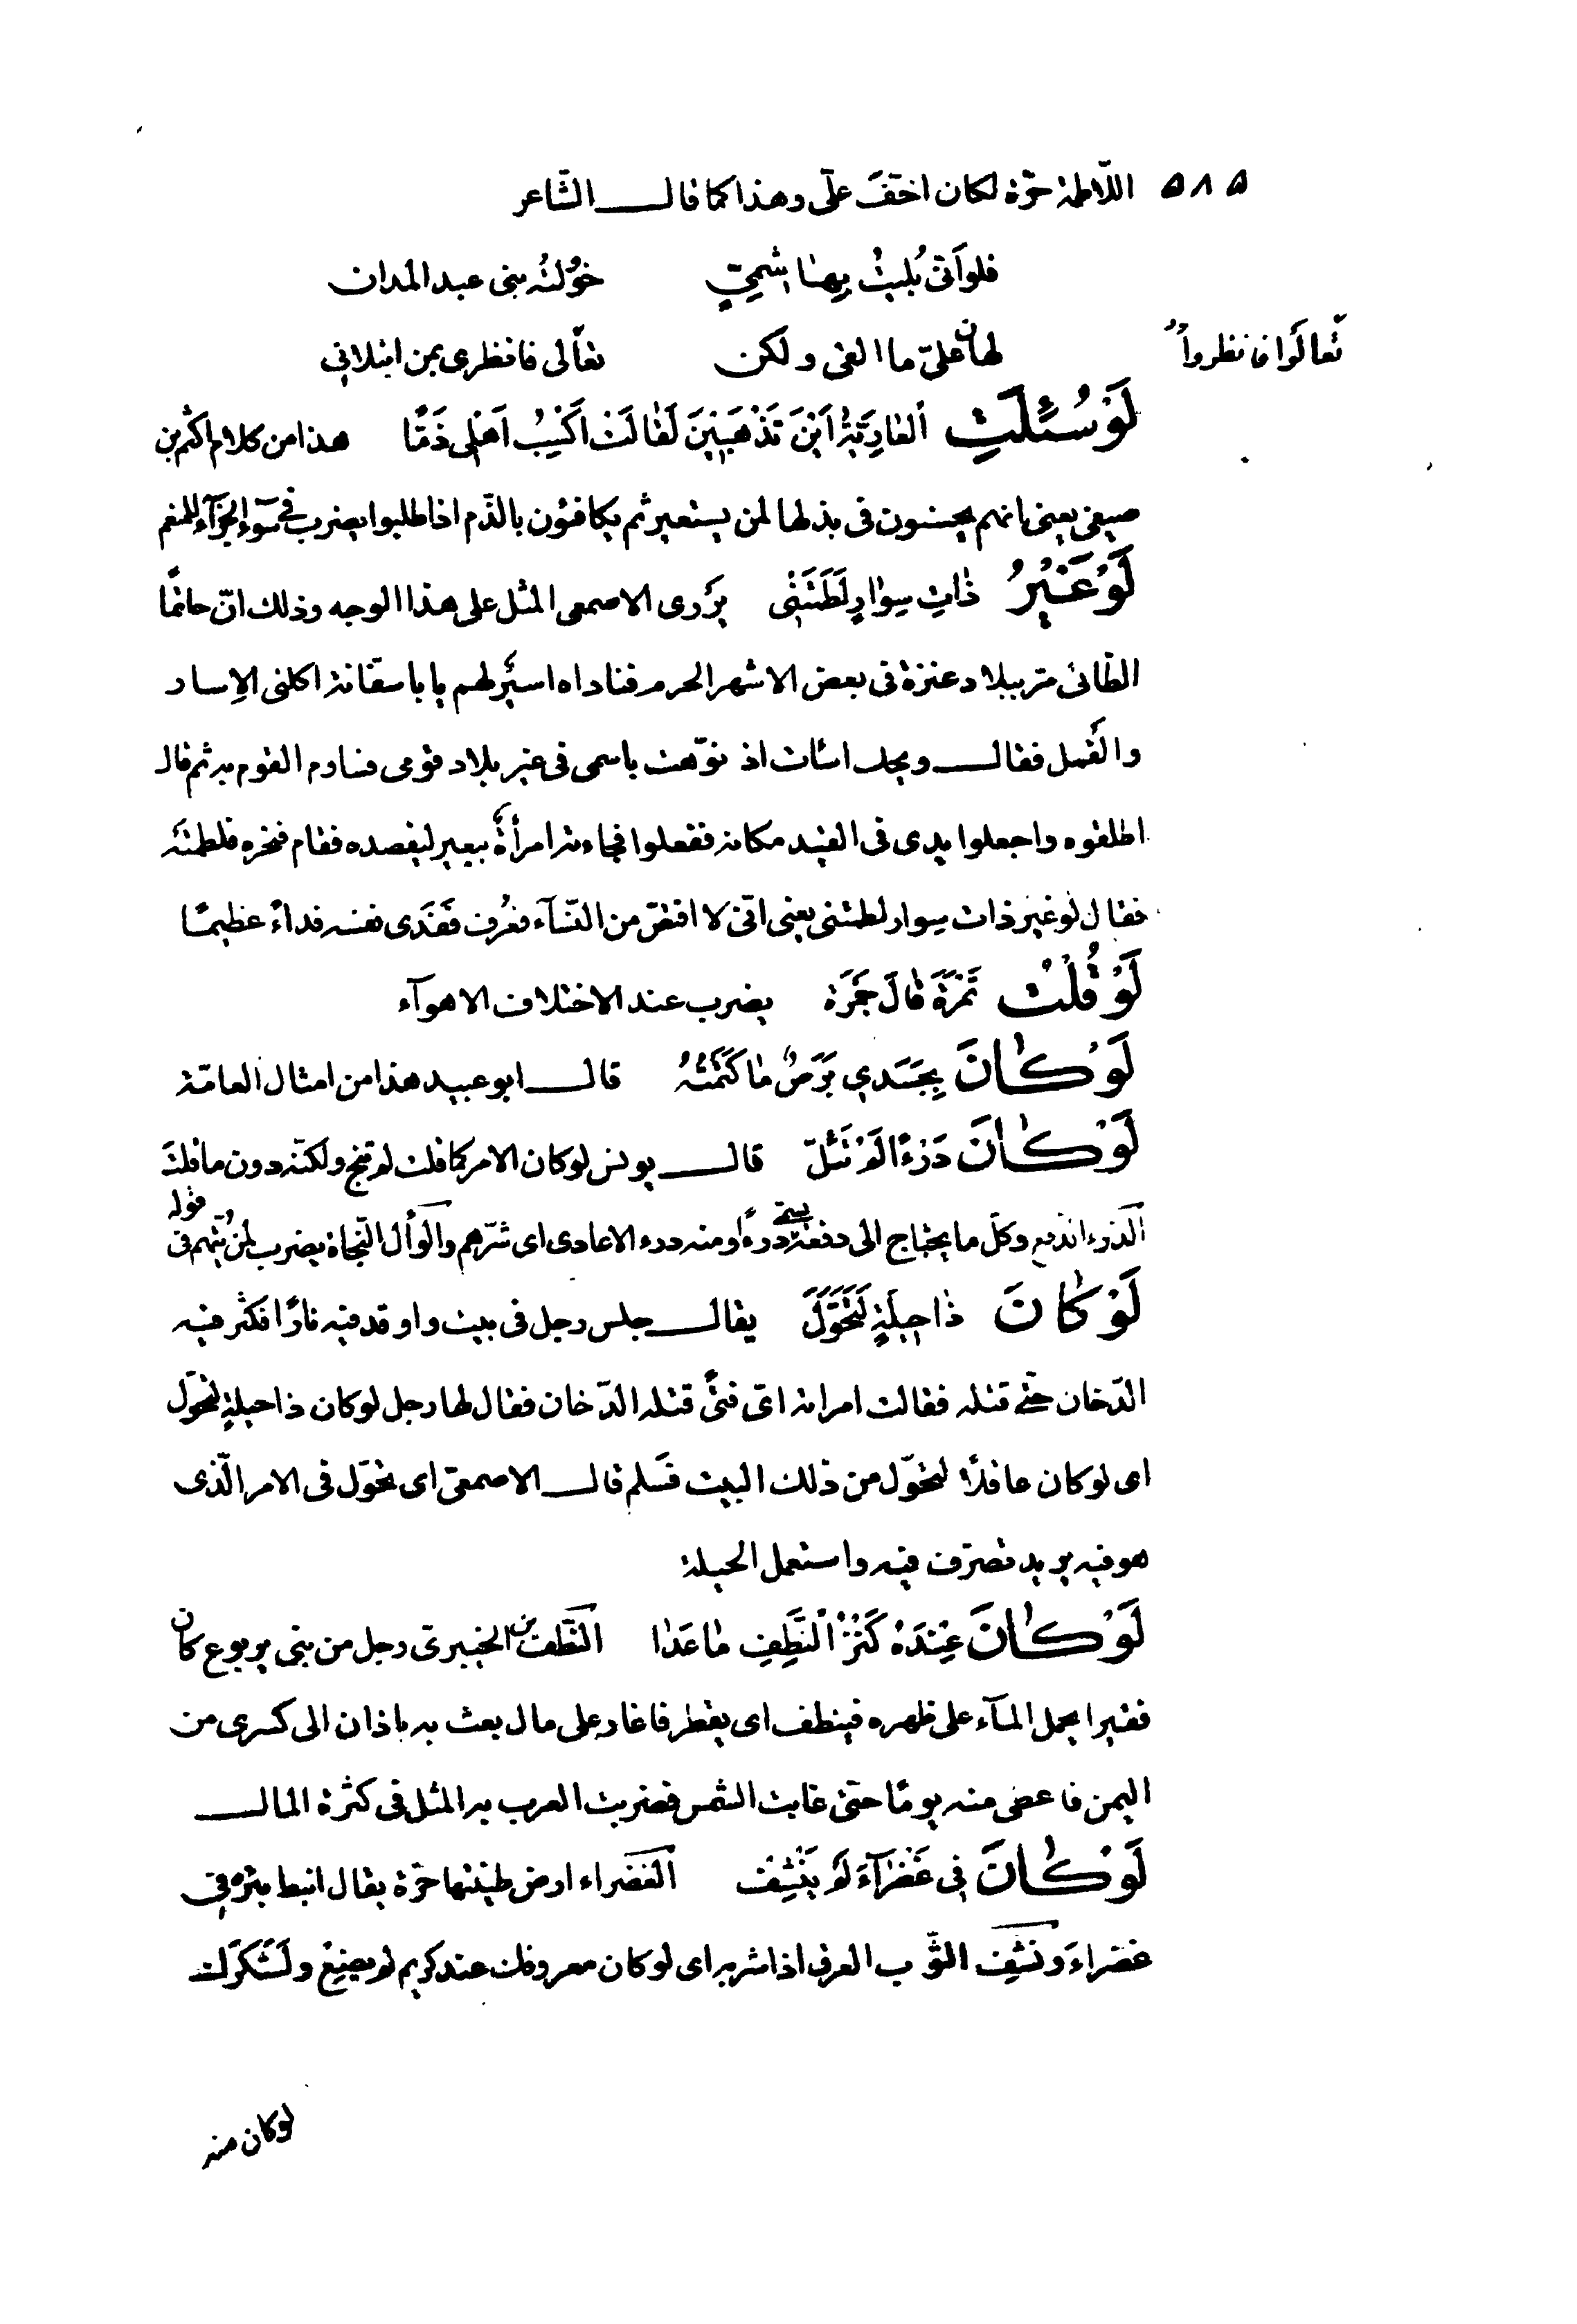 ٥٨٥ اللّاطمة حرّة لكان اخفّ علىّ وهذا كما قال الشّاعر
فلو اَنّى بُليتُ بهاشمىٍّ خؤلتُه بنى عبد المدان
لهان علىّ ما القى ولكن تعالى فانظرى بمن ابتلانى
تعالَوا فانظروا
لَوْ سُئِلَتِ الْعَارِيَةُ اَيْنَ تَذْهَبِينَ لَقَالَتْ اَكْسِبُ اَهْلِى ذَمًّا هذا من كلام اكثم بن
صيفى يعنى انهم يحسنون فى بذلها لمن يستعير ثم يكافئون بالذّم اذا طلبوا يضرب فى سوء الجزاء للمنعم
لَوْ غَيْرُ ذٰاتِ سِوٰارٍ لَطَمَتْنِى يَروى الاصمعى المثل على هذا الوجه وذلك انّ حاتمًا
الطّائى مرّ ببلاد عنزة فى بعض الاشهر الحرم فناداه اسير لهم يا باسفّانة اكلنى الاِسار
والقَمل فقال ويحك اسأت اذ نوّهت باسمى فى غير بلاد قومى فساوم القوم به ثم قال
اطلقوه واجعلوا يدى فى القيد مكانه ففعلوا فجاءته امرأةٌ ببعير ليفصده فقام فنحره فلطمتْه
فقال لو غير ذات سوار لطمتنى يعنى انّى لا اقتصّ من النّسآء فعُرِف فَفَدى نفسه فداءً عظيمًا
لَوْ قُلْتُ تَمْرَةً قٰالَ جَمْرَة يضرب عند الاختلاف الاهوآء
لَوْ كٰانَ بِجَسَدِى بَرَصٌ مٰا كَتَمْتُهُ قال ابو عبيد هذا من امثال العامّة
لَوْ كٰانَ دَرْءًا لَمْ تَئِلْ قال يونس لو كان الامر كما قلت لم تنج ولكنّه دون ما قلتَ
الدّرْء الدّفع وكلّ ما يحتاج الى دفعه يسمّى درْءًا ومنه درء الاعادى اى شرّهم والوَأْل النّجاة يضرب لمن يُتّهم فى قوله
لَوْ كٰانَ ذٰا حِيلَةٍ لَتَحَوَّلَ يقال جلس رجل فى بيت واوقد فيه نارًا فكثر فيه
الدّخان حتّى قتله فقالت امراته اىّ فتًى قتله الدّخان فقال لها رجل لو كان ذا حيلةٍ لتحوّل
اى لو كان عاقلًا لتحوّل من ذلك البيت فسَلم قال الاصمعىّ اى تحوّل فى الامر الّذى
هو فيه يريد تصرّف فيه واستعمل الحيلة
لَوْ كٰانَ عِنْدَهُ كَنْزُ الْنَّطِفِ مٰا عَدٰا النَّطِف بن الخيبرىّ رجل من بنى يربوع كان
فقيرا يحمل المآء على ظهره فينطف اى يقطر فاغار على مال بعث به باذان الى كسرى من
اليمن فاعطى منه يومًا حتّى غابت الشمس فضربت العرب به المثل فى كثرة المال
لَوْ كٰانَ فِى غَضْرٰآءَ لَمْ يَنْشِفْ الغَضراء ارض طينتها حرّة يقال انبط بئره فى
غضراءَ ونَشِف الثّوب العرق اذا شربه اى لو كان معروفك عند كريم لم يضِعْ ولَشكرك
لو كان منه